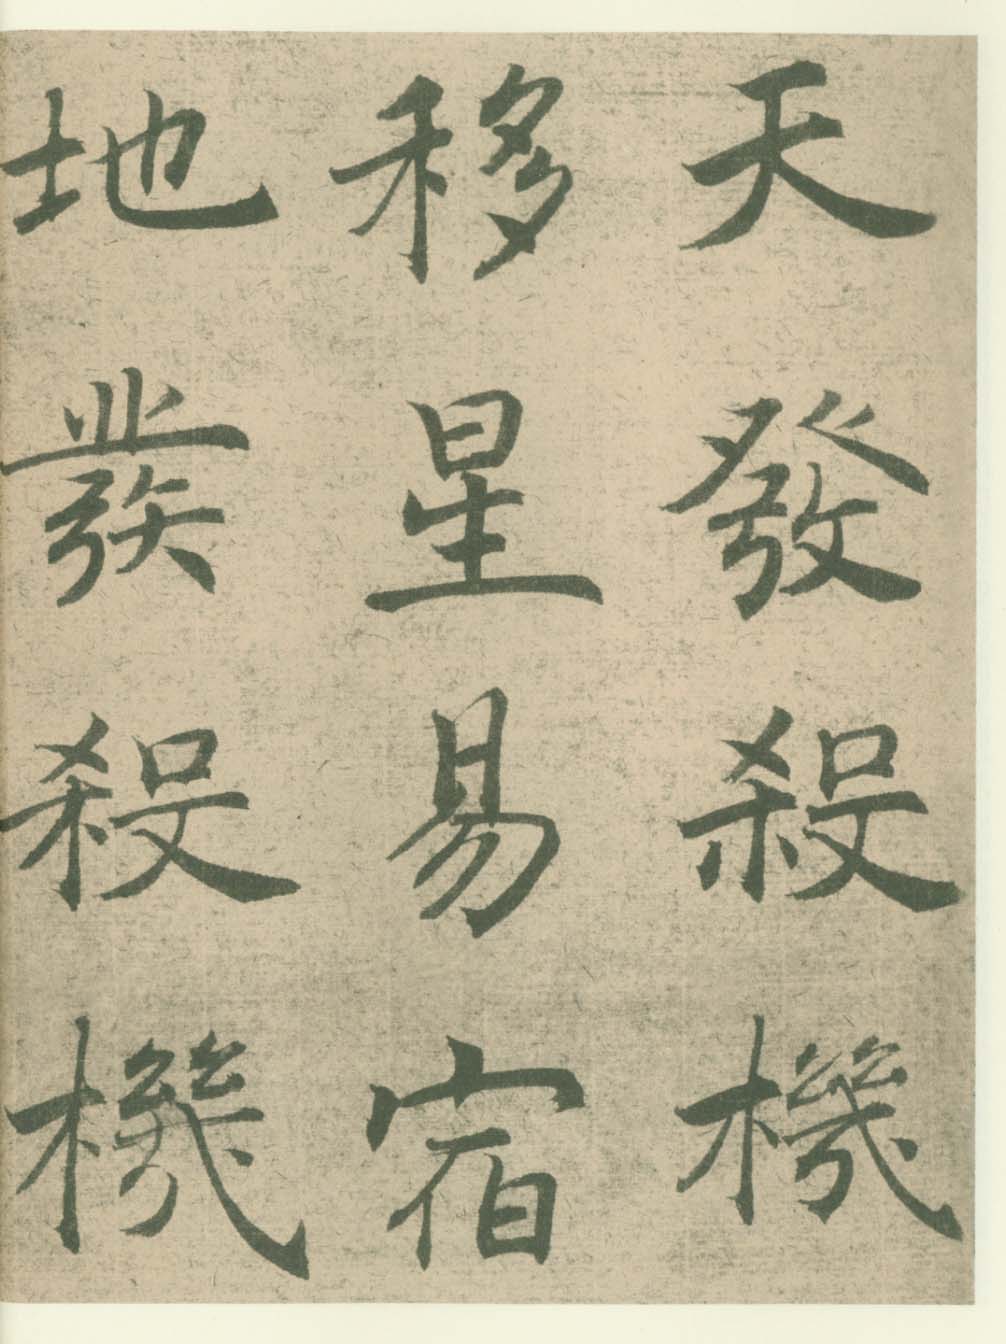 天發殺機
移星易宿
地發殺機